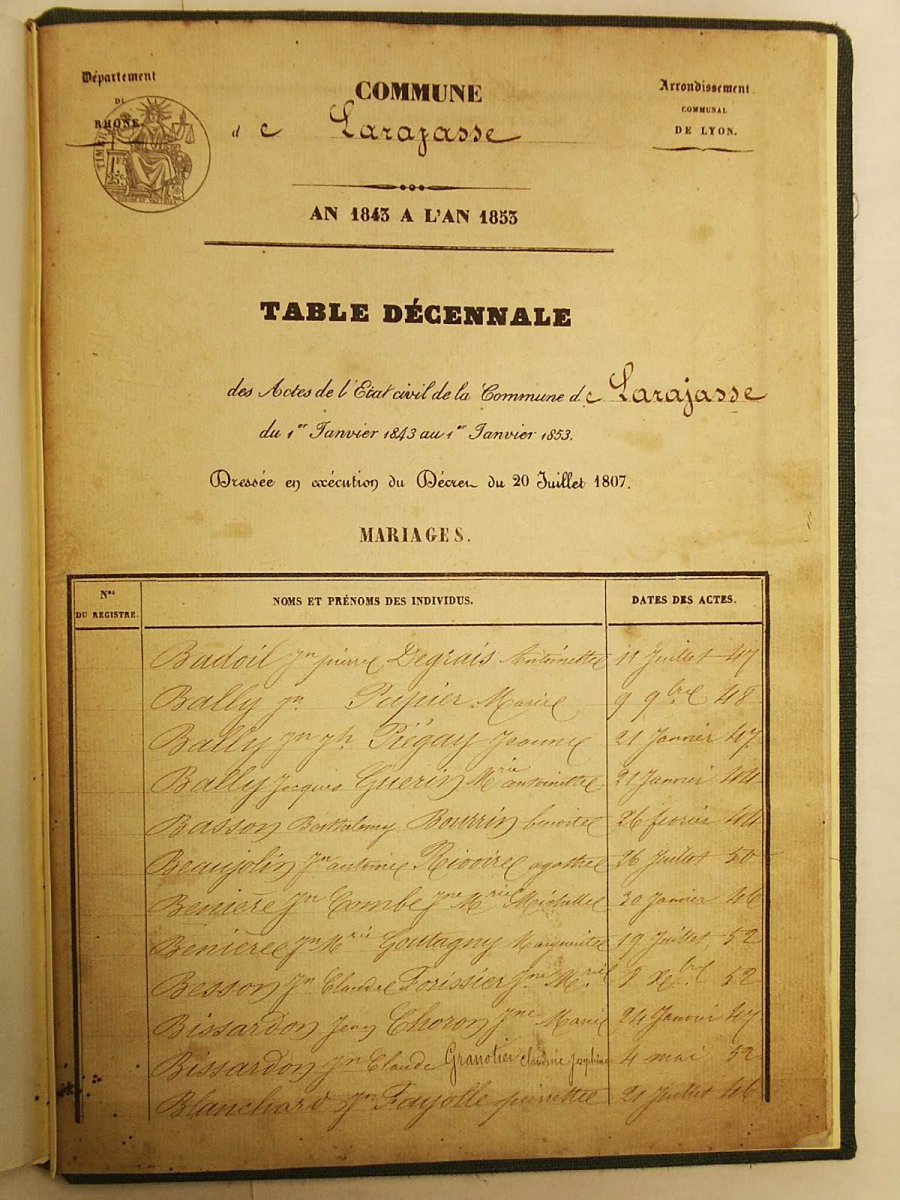 Département
DU
RHÔNE
TIMBRE
1 FR
25 C.
COMMUNE
de Larajasse
Arrondissement
COMMUNAL
DE LYON.
AN 1843 A L'AN 1853
TABLE DÉCENNALE
des Actes de l'Etat civil de la Commune de Larajasse
du 1er Janvier 1843 au 1er Janvier 1853.
Dressée en exécution du Décret du 20 Juillet 1807.
MARIAGES.
Nos DU REGISTRE. NOMS ET PRÉNOMS DES INDIVIDUS. DATES DES ACTES.
Badoil Jn pierre Degrais Antoinette 11 Juillet 47
Bally Jn Pupier Marie 9 9bre 48
Bally Jn ph Piégay Jeanne 21 Janvier 47
Bally Jacques Guerin Mrie antoinette 21 Janvier 44
Basson Barthelemy Bourrin benoite 26 fevrier 44
Beaujolin Jn antoine Rivoire agathe 26 Juillet 50
Benière Jn Combe Jne Mrie 30 Janvier 46
Benière Jn Mrie Goutagny Marguerite 19 Juillet 52
Besson Jn Claude Forissier Jne Mrie Xbre 52
Bissardon Jean Choron Jne Marie 24 Janvier 47
Bissardon Jn Claude Granotier Claudine Josephine 4 mai 52
Blanchard Jn Fayolle pierrette 21 Juillet 46